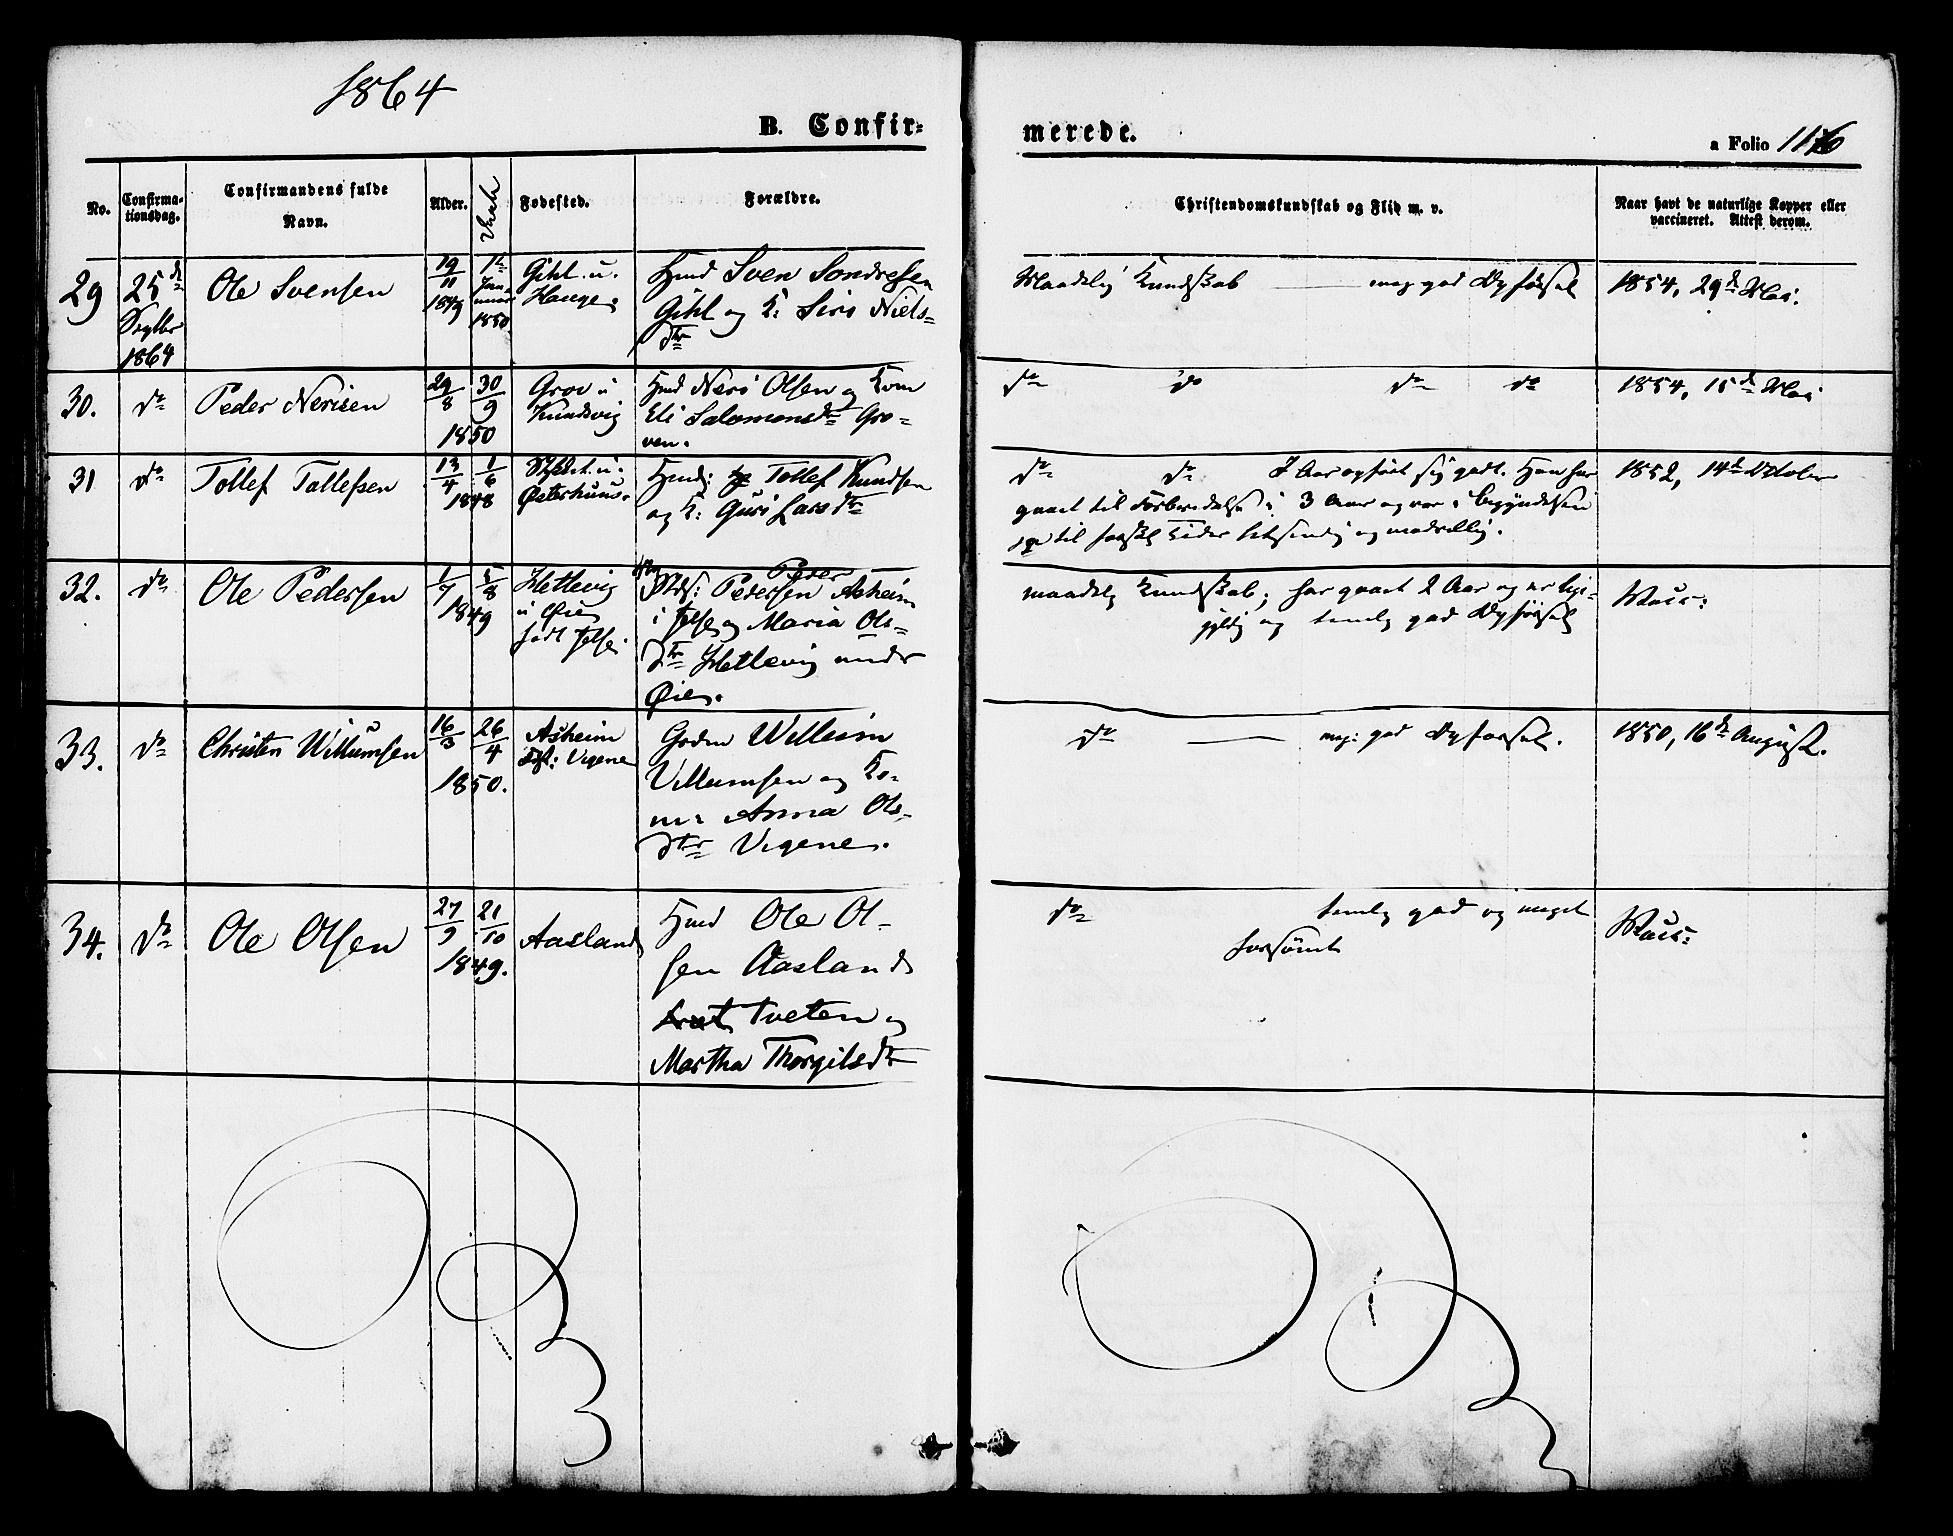 1864
B. Confir-
merede.
a Folio 116
No.
Confirma-
tionsdag.
Confirmandens fulde
Navn.
Alder.
Fødested.
Forældre.
Christendomskundskab og Flid m. v.
Naar havt de naturlige Kopper eller
vaccineret. Attest derom.
29
25de
Septbr
1864
Ole Svensen
19/11
1849
1te
Jan-
nuar
1850
Gihl u.
Hauge
Gmd Sven Sondresen
Gihl og K: Siri Niels-
dtr
Maadelig Kundskab — meg god Opførsel
1854, 29de Mai.
30.
do
Peder Nerisen
29/8
30/9
1850
Grov u
Kundsvig
Gmd Neri Olsen og Kone
Eli Salomonsdtr Gro-
ven.
do do do do
1854, 15de Mai
31
do
Tollef Tollefsen
13/4
1/6
1848
u.
Østerhuus
Gmd: Tollef Knudsen
og K: Guri Larsdtr
do do I Aar opført sig godt. Han har
gaaet til Forberedelse i 3 Aar og var i begyndelsen
til forskj Tider letsindig og modvillig.
1852, 14de October
32.
do
Ole Pedersen
1/7
5/8
1849
Hetlevig
u Øie
født Jelse.
Peder
Pedersen Asheim
i Jelse og Maria Ols-
dtr Hetlevig under
Øie.
maadelig Kundskab; har gaaet 2 Aar og er lige-
gyldig og temlig god Opførsel
Vacc:
33.
do
Christen Willumsen
16/3
26/4
1850.
Asheim
Vigene
Gmd Willum
Villumsen og Ko-
ne Anna Ols-
dtr Vigene.
do — meg: god Opførsel.
1850, 16de August.
34.
do
Ole Olsen
27/9
21/10
1849.
Aasland
Gmd Ole Ol-
sen Aasland
Tveten og
Martha Thorgilsdtr
do temlig god og meget
forsømt
Vacc: